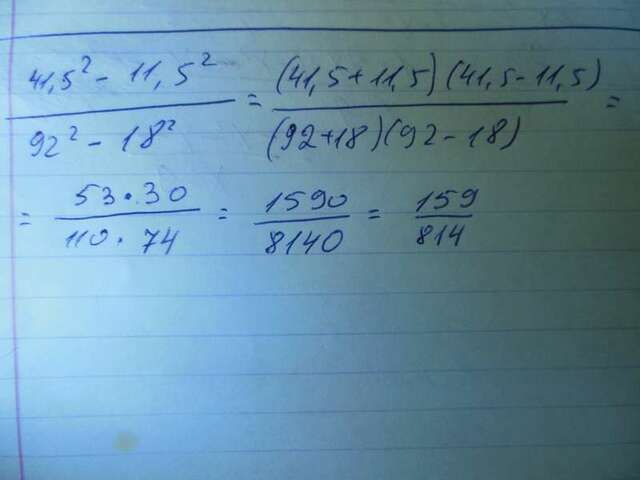 (41,5² - 11,5²)/(92² - 18²) = ((41,5+11,5)(41,5-11,5))/((92+18)(92-18)) =
= (53·30)/(110·74) = 1590/8140 = 159/814